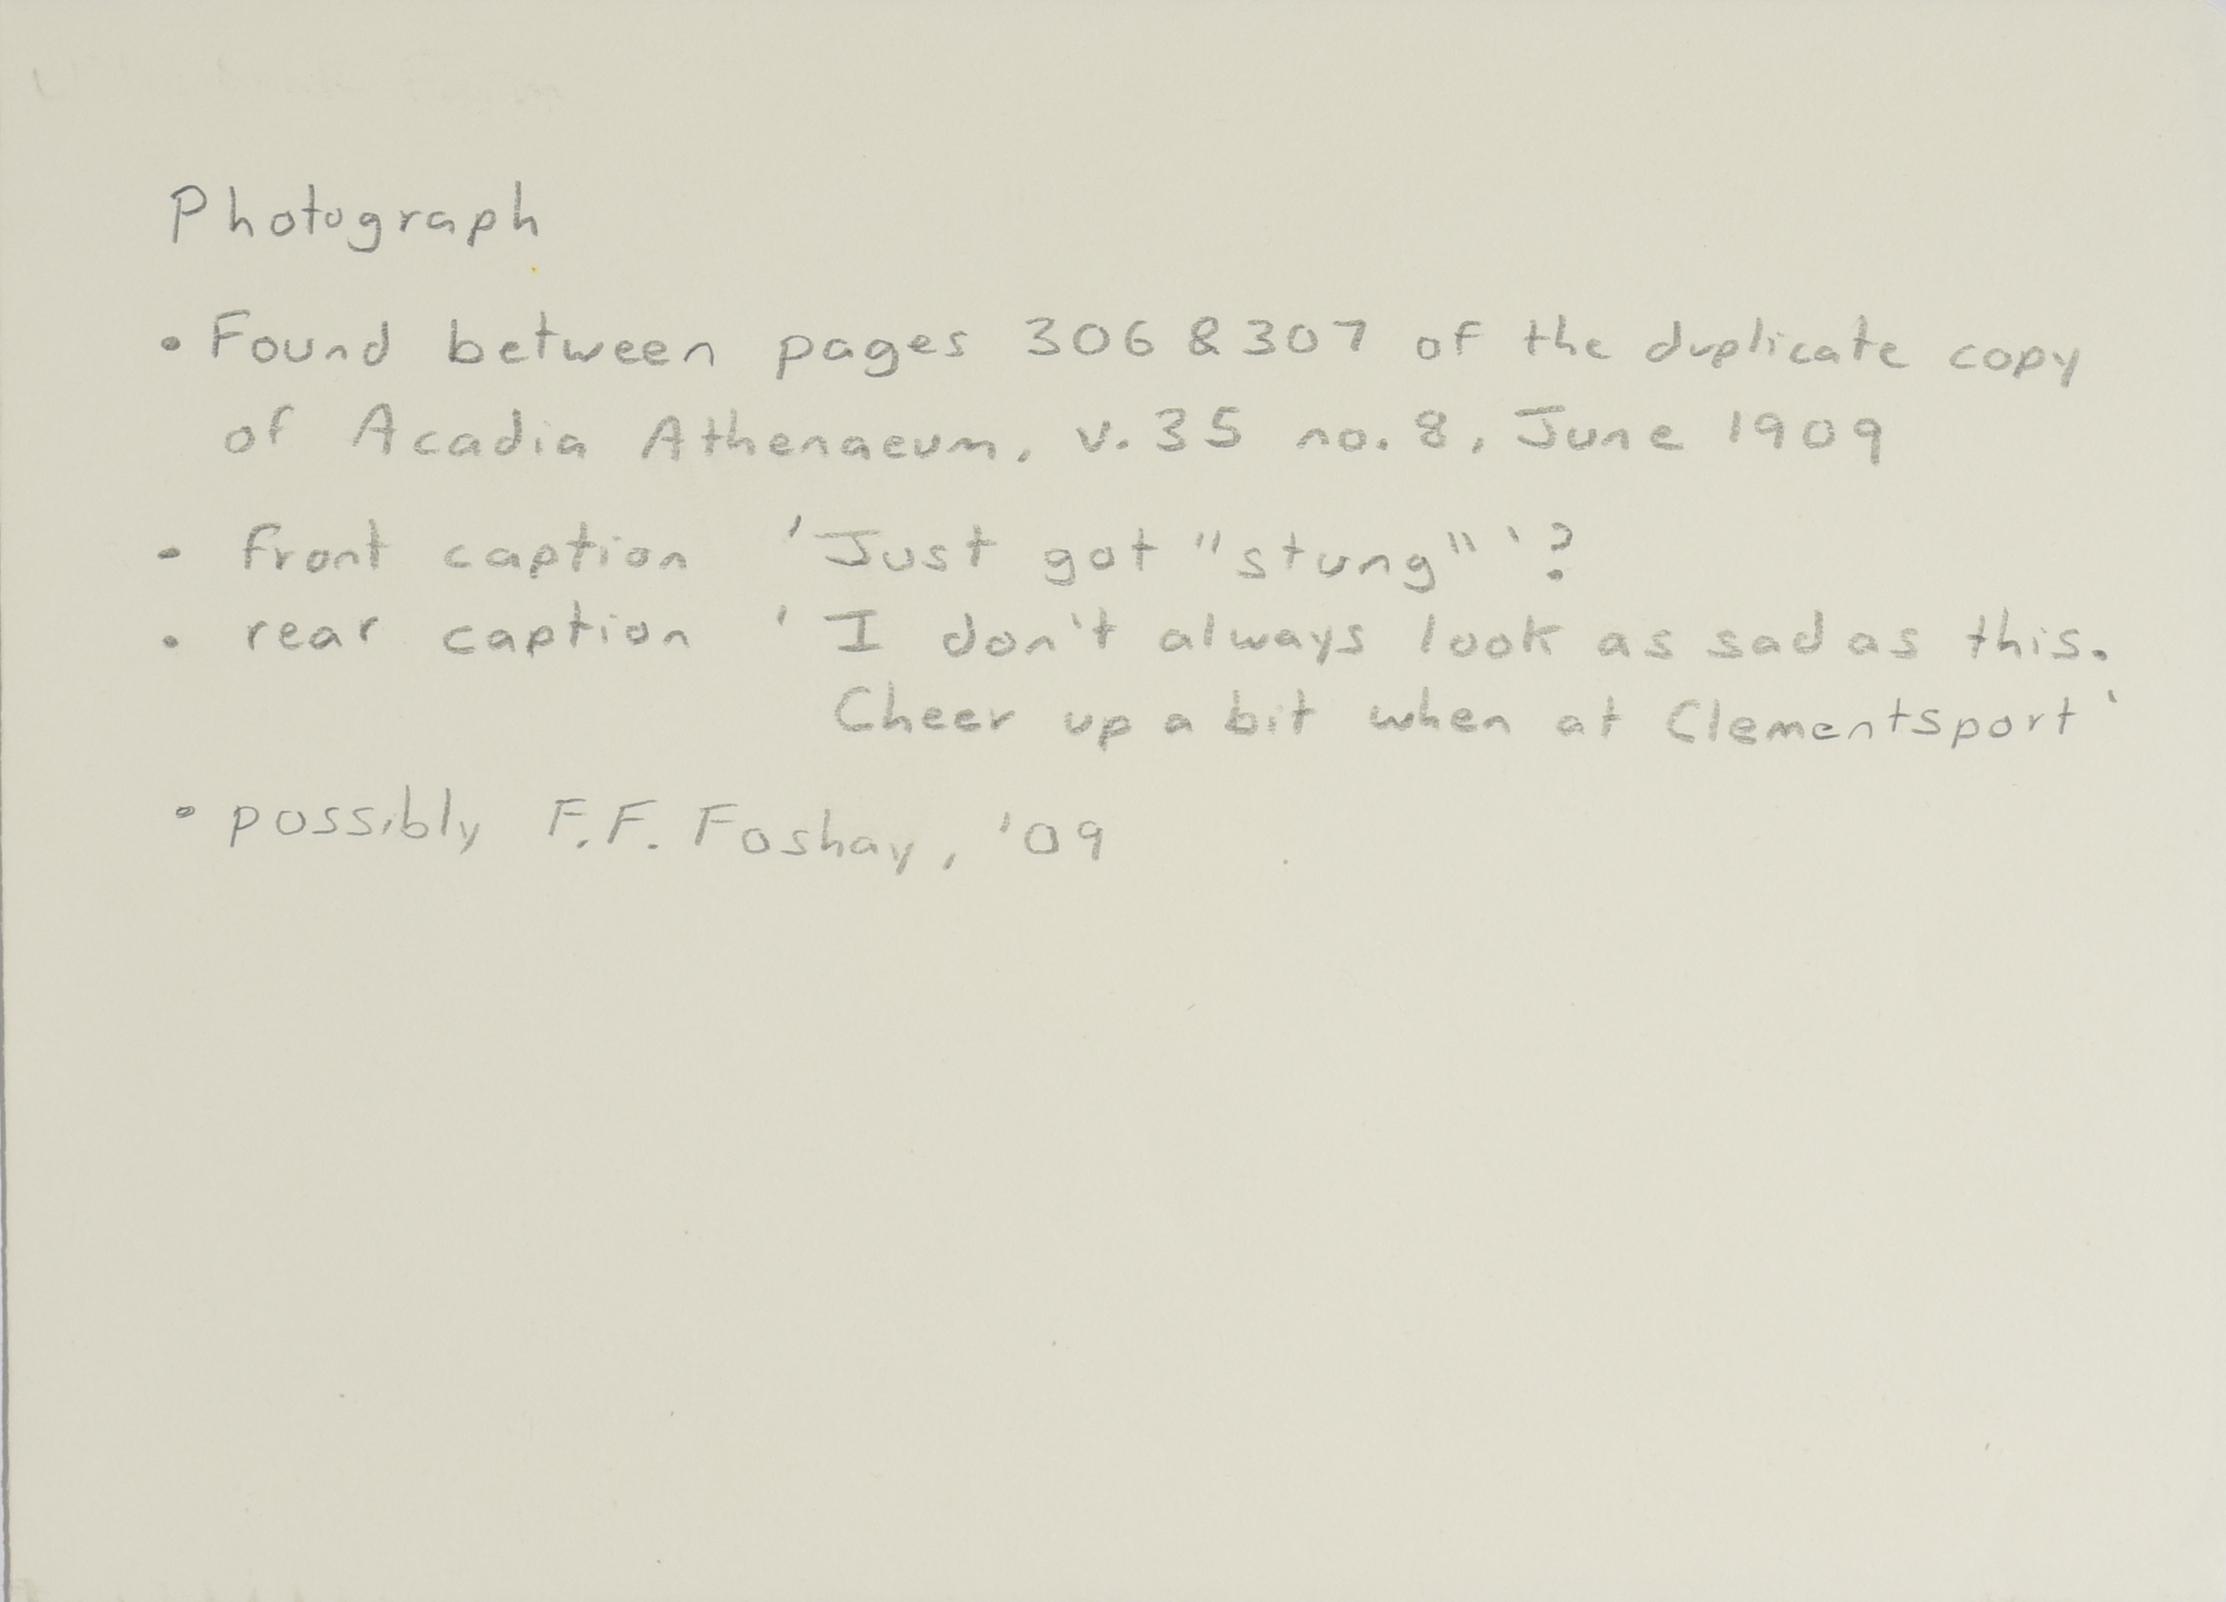 Photograph
• Found between pages 306 & 307 of the duplicate copy
of Acadia Athenaeum, v. 35 no. 8, June 1909
• front caption 'Just got "stung"'?
• rear caption 'I don't always look as sad as this.
Cheer up a bit when at Clementsport'
• possibly F.F. Foshay, '09